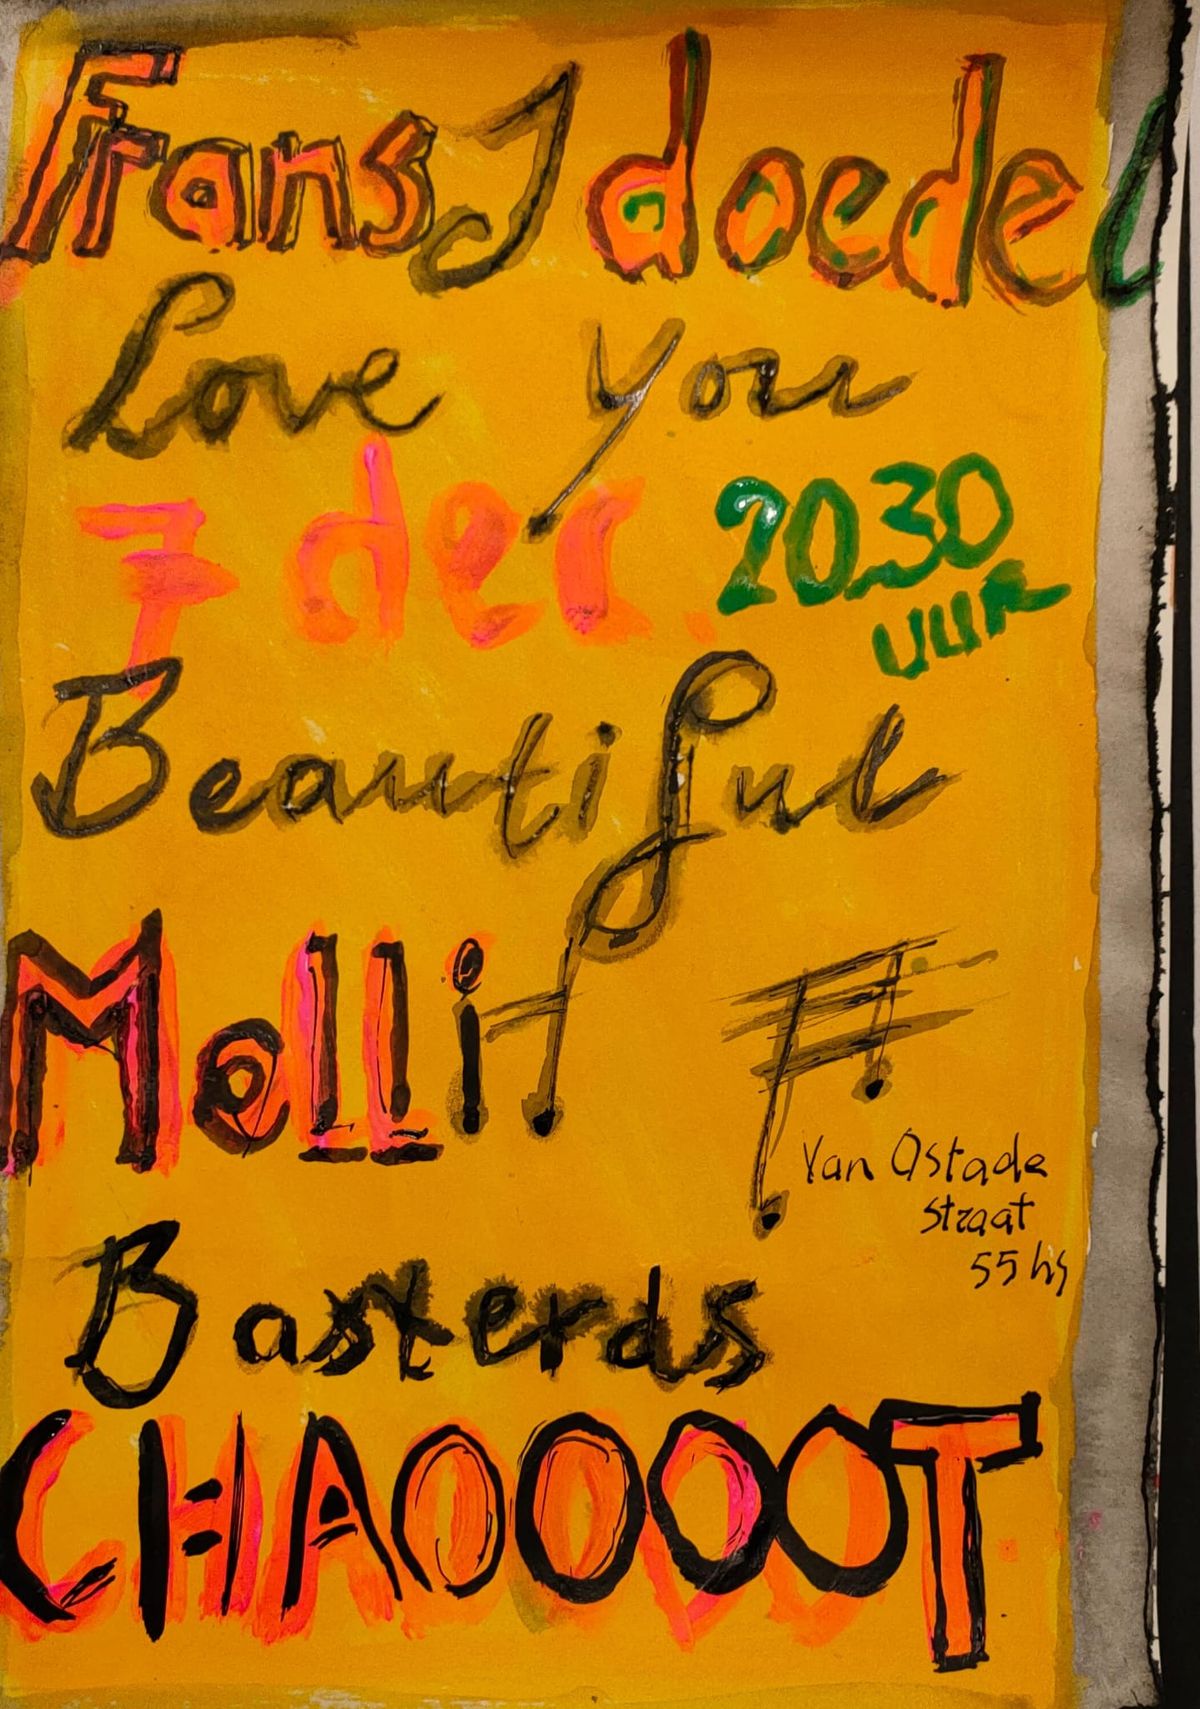 Frans J doedel
Love you
7 dec. 20.30
UUR
Beautiful
Molli
Van Ostade
straat
55 hs
Basterds
CHAOOOOT